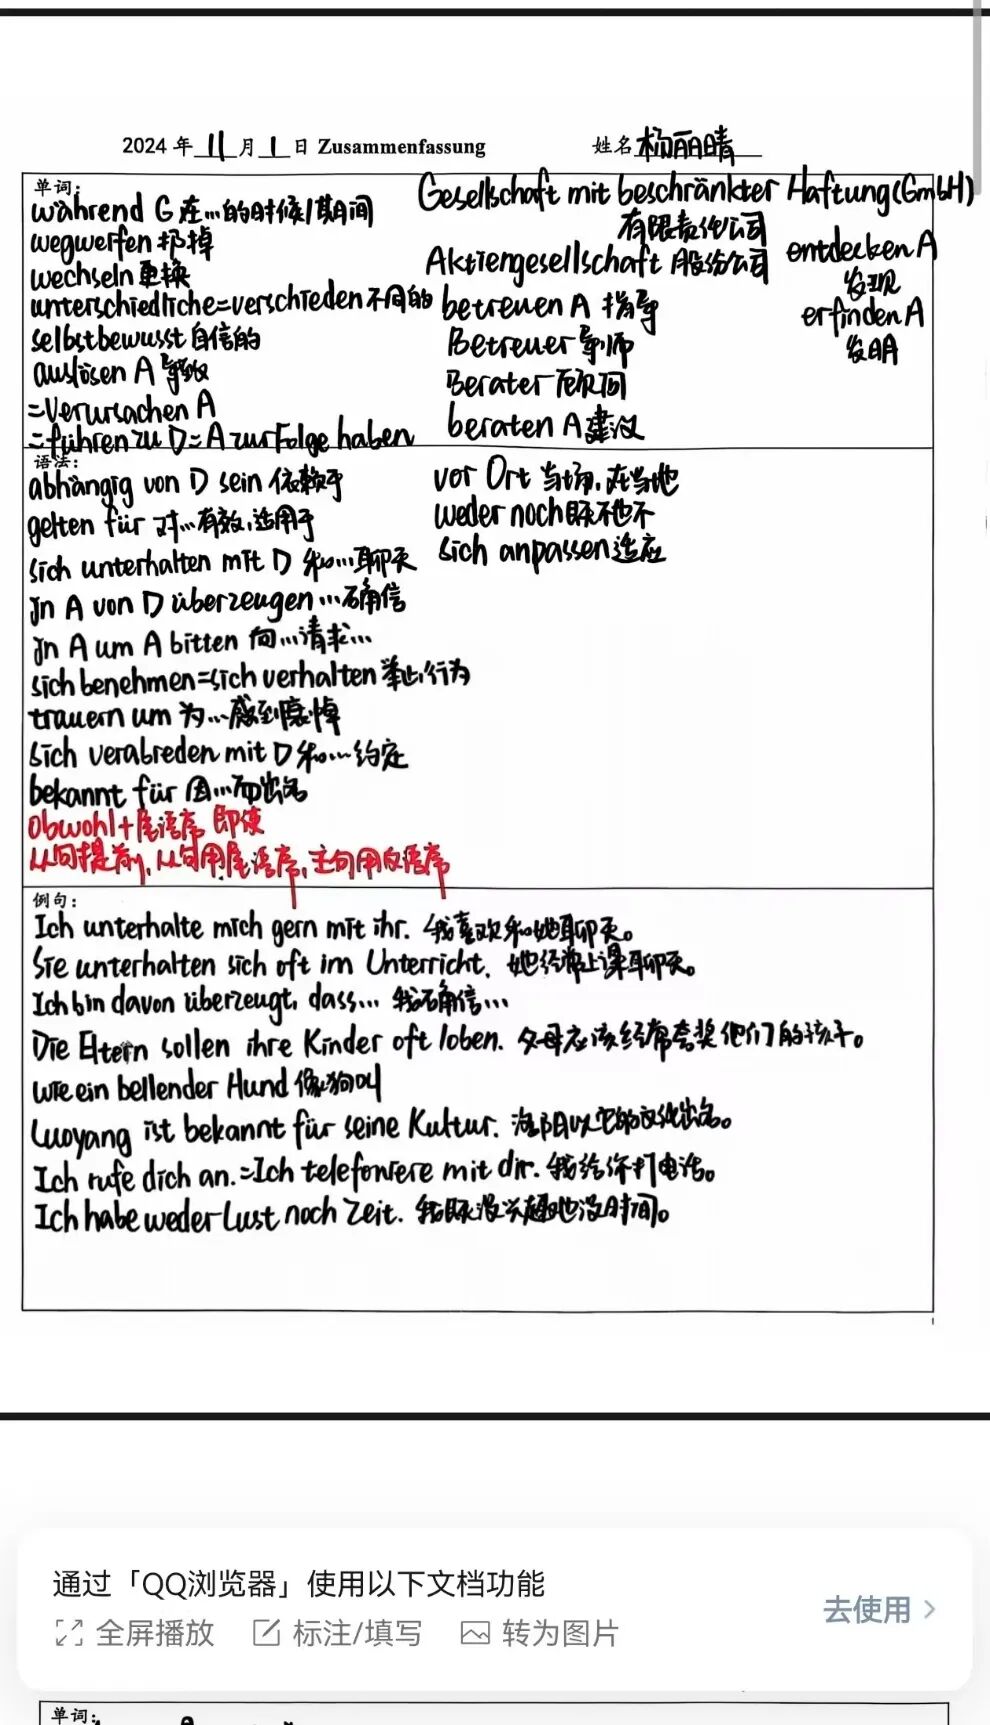 2024 年 11 月 1 日 Zusammenfassung 姓名 杨丽晴
单词:
während G 在…的时候/期间
wegwerfen 扔掉
wechseln 更换
unterschiedliche=verschieden 不同的
selbstbewusst 自信的
auslösen A 导致
=verursachen A
=führen zu D=A zur Folge haben
Gesellschaft mit beschränkter Haftung(GmbH)
有限责任公司
Aktiengesellschaft 股份公司
betreuen A 指导
Betreuer 导师
Berater 顾问
beraten A 建议
entdecken A
发现
erfinden A
发明
语法:
abhängig von D sein 依赖于
gelten für 对…有效,适用于
sich unterhalten mit D 和…聊天
jn A von D überzeugen …确信
jn A um A bitten 向…请求…
sich benehmen=sich verhalten 举止,行为
trauern um 为…感到哀悼
sich verabreden mit D 和…约定
bekannt für 因…而出名
obwohl+尾语序 即使
从句提前,从句用尾语序,主句用反语序
vor Ort 当场,在当地
weder noch 既不也不
sich anpassen 适应
例句:
Ich unterhalte mich gern mit ihr. 我喜欢和她聊天。
Sie unterhalten sich oft im Unterricht. 她经常上课聊天。
Ich bin davon überzeugt, dass... 我确信…
Die Eltern sollen ihre Kinder oft loben. 父母应该经常夸奖他们的孩子。
wie ein bellender Hund 像狗叫
Luoyang ist bekannt für seine Kultur. 洛阳以它的文化出名。
Ich rufe dich an.=Ich telefoniere mit dir. 我给你打电话。
Ich habe weder Lust noch Zeit. 我既没兴趣也没时间。
1
通过「QQ浏览器」使用以下文档功能
全屏播放 标注/填写 转为图片
去使用
单词: